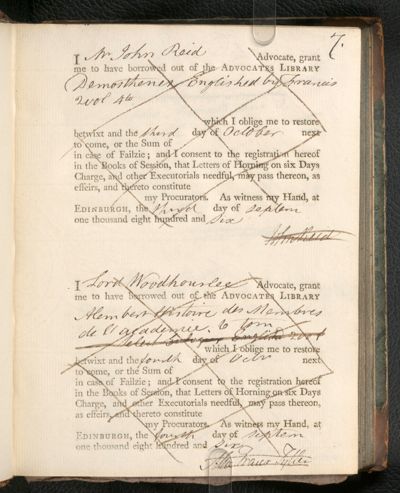 7.
I Mr John Reid Advocate, grant
me to have borrowed out of the ADVOCATES LIBRARY
Demosthenes Englished by Francis
2 vol 4to
which I oblige me to restore
betwixt and the third day of October next
to come, or the Sum of
in case of Failzie; and I consent to the registration hereof
in the Books of Session, that Letters of Horning on six Days
Charge, and other Executorials needful, may pass thereon, as
effeirs, and thereto constitute
my Procurators. As witness my Hand, at
EDINBURGH, the third day of Septem
one thousand eight hundred and Six
John Reid
I Lord Woodhouslee Advocate, grant
me to have borrowed out of the ADVOCATES LIBRARY
Alembert Histoire des Membres
de l'academie. 6 tom
English 2 vol
which I oblige me to restore
betwixt and the fourth day of Octr next
to come, or the Sum of
in case of Failzie; and I consent to the registration hereof
in the Books of Session, that Letters of Horning on six Days
Charge, and other Executorials needful, may pass thereon,
as effeirs, and thereto constitute
my Procurators. As witness my Hand, at
EDINBURGH, the fourth day of Septem
one thousand eight hundred and Six
Fraser Tytler